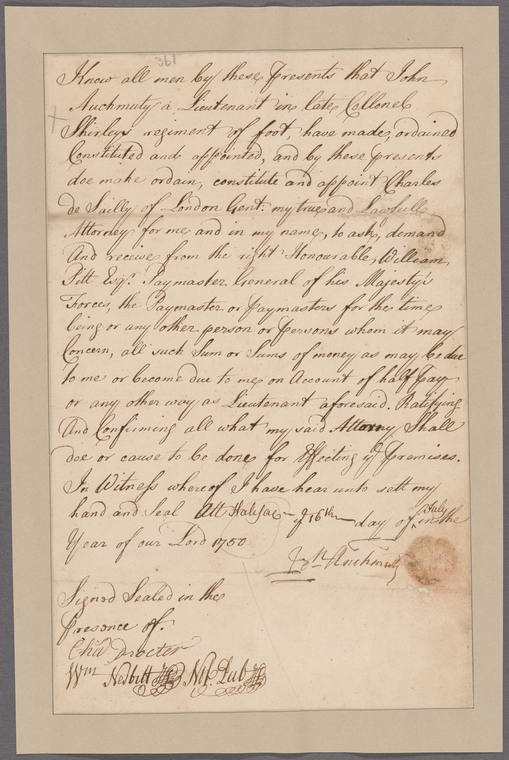 361
Know all men by these presents that John
Auchmuty a Lieutenant in late Collonel
Shirleys regiment of foot, have made, ordained
Constituted and appointed, and by these presents
doe make ordain, constitute and appoint Charles
de Sailly of London Gent: my true and Lawfull
Attorney for me and in my name, to ask, demand
And receive from the right Honourable, William
Pitt Esqr. Paymaster General of his Majesty's
Forces, the Paymaster or Paymasters for the time
being or any other person or persons whom it may
Concern, all such Sum or Sums of money as may be due
to me or become due to me on Account of half Pay
or any other way as Lieutenant aforesaid. Ratifying
And Confirming all what my said Attorny Shall
doe or cause to be done for Effecting ye Premises.
In Witness whereof I have hear unto sett my
hand and Seal Att Halifax ye 16th day of July in the
Year of our Lord 1750
Jon Auchmuty
Signed Sealed in the
Presence of.
Chas Procter
Wm Nesbitt Not. Pub